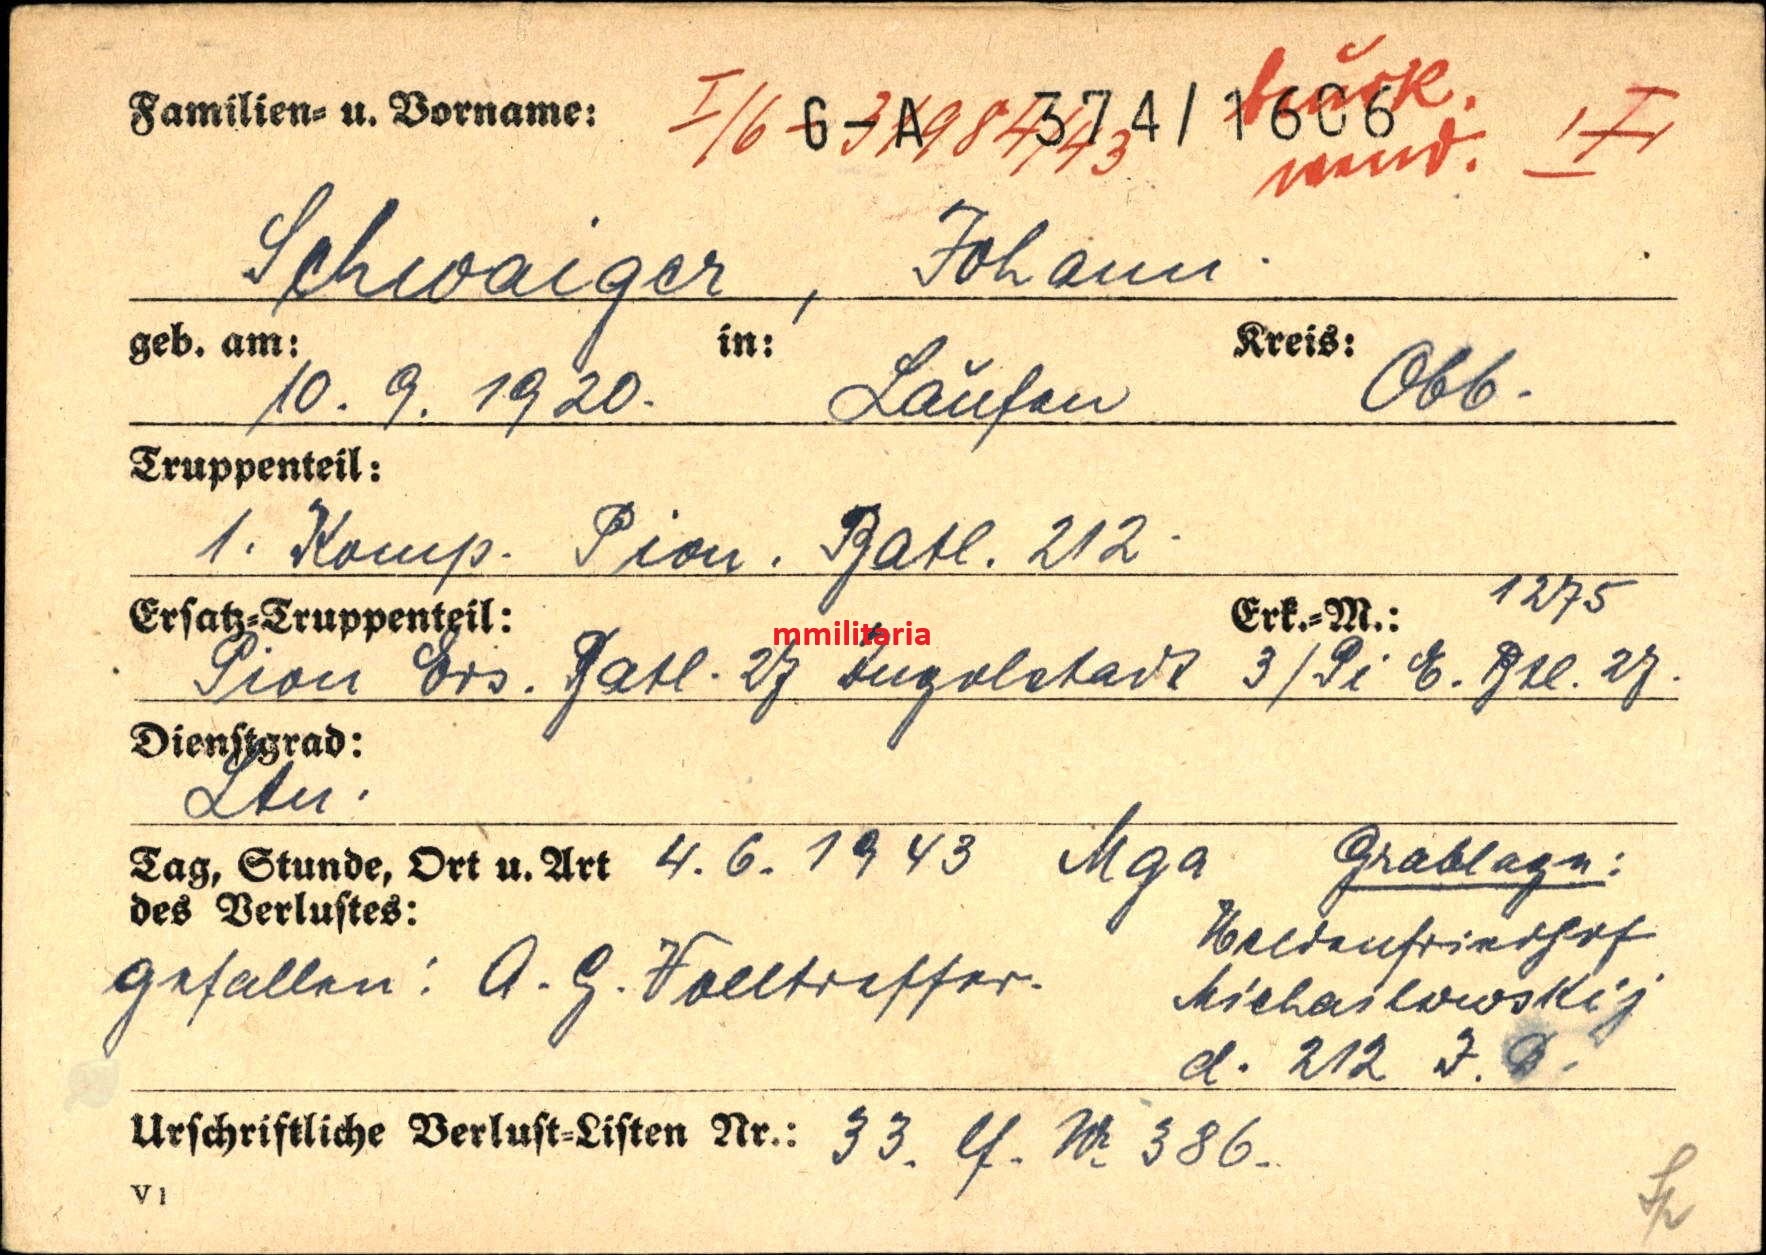 Familien- u. Vorname: I/6 6-A 374/1606 I
wend.
Schwaiger, Johann.
geb. am: in: Kreis:
10. 9. 1920. Laufen Obb.
Truppenteil:
1. Komp. Pion. Batl. 212.
Ersatz-Truppenteil: Erk.-M.: 1275
mmilitaria
Pion Ers. Batl. 27 Ingolstadt 3/Pi E. Btl. 27.
Dienstgrad:
Ltn.
Tag, Stunde, Ort u. Art 4. 6. 1943 Mga Grablage:
des Verlustes:
Heldenfriedhof
gefallen: A. G. Volltreffer.
Michailowskij
d. 212 I. D.
Urschriftliche Verlust-Listen Nr.: 33. lf. Nr. 386.
V 1